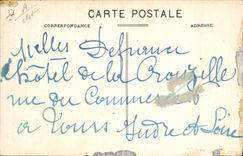 CARTE POSTALE
CORRESPONDANCE ADRESSE
Melles Defrance
hôtel de la Crouzille
rue du Commerce
à Tours Indre et Loire